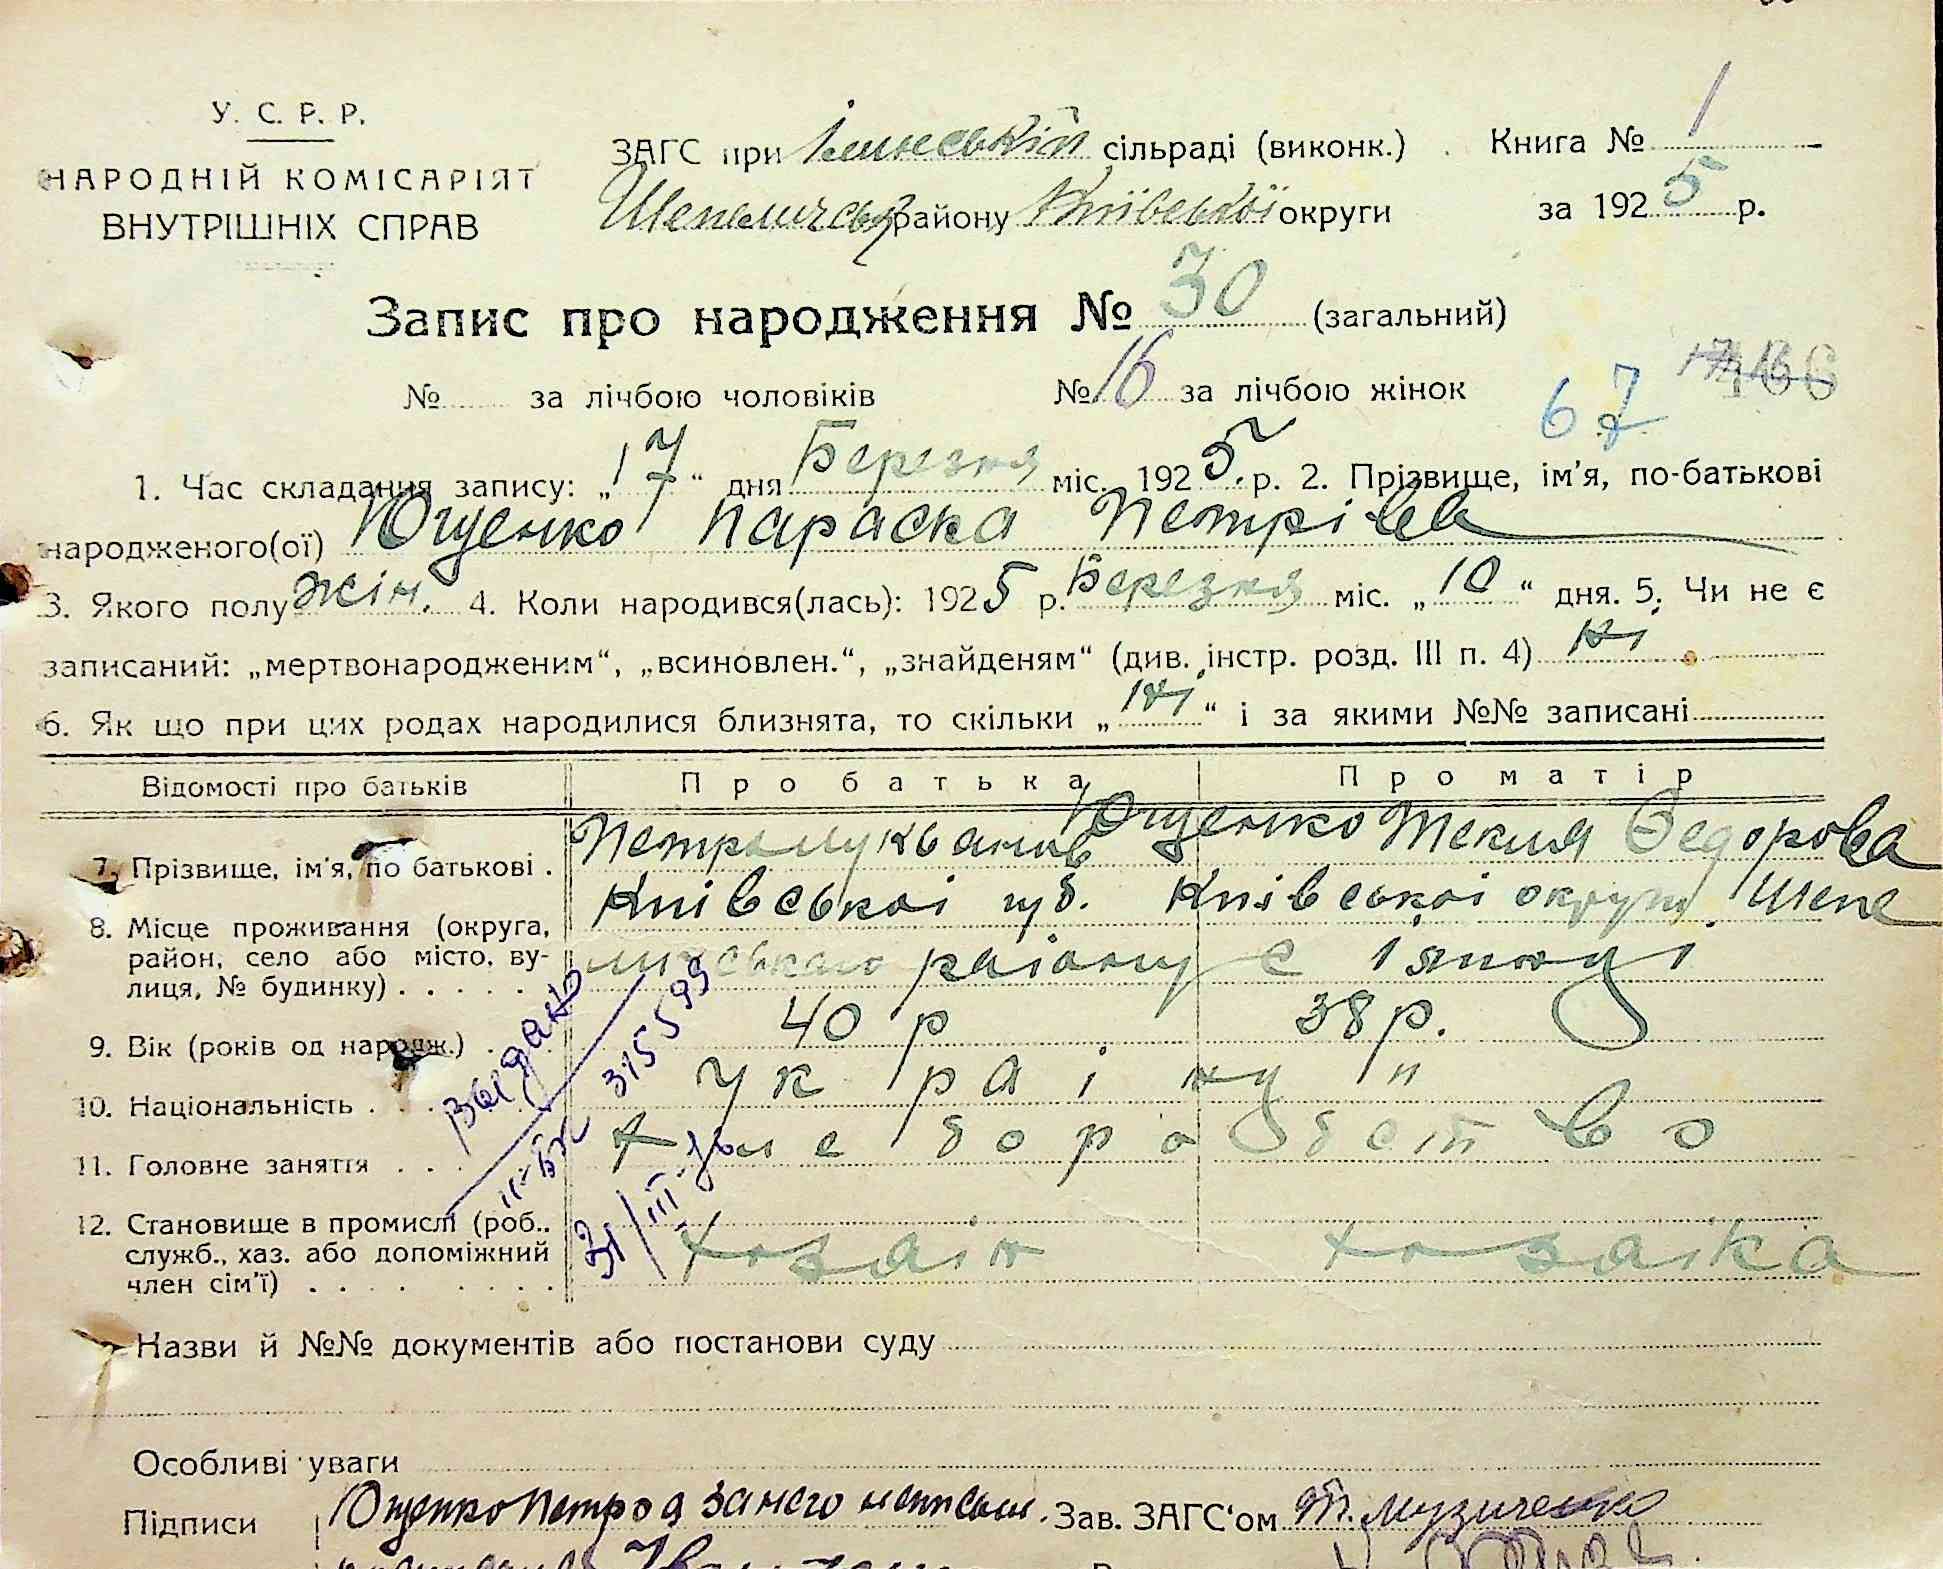 У. С. Р. Р.
НАРОДНІЙ КОМІСАРІЯТ
ВНУТРІШНІХ СПРАВ
ЗАГС при Ілинській сільраді (виконк.)
Шепелицьк району Київської округи
Книга № 1
за 1925 р.
Запис про народження № 30 (загальний)
№ за лічбою чоловіків № 16 за лічбою жінок
67
1. Час складання запису: „17“ дня Березня міс. 1925 р. 2. Прізвище, ім'я, по-батькові
народженого(ої) Ющенко Параска Петрівва
3. Якого полу жін. 4. Коли народився(лась): 1925 р. Березня міс. „10“ дня. 5. Чи не є
записаний: „мертвонародженим“, „всиновлен.“, „знайденям“ (див. інстр. розд. III п. 4) ні
6. Як що при цих родах народилися близнята, то скільки „ні“ і за якими №№ записані
Відомості про батьків Про батька Про матір
7. Прізвище, ім'я, по батькові . Петро Лукьянов Ющенко Текля Федорова
8. Місце проживання (округа, Київськоі губ. Київськоі округи Шепе
район, село або місто, ву- личського раіону с
лиця, № будинку)
9. Вік (років од народж.) 40 р 38 р.
10. Національність україну "
11. Головне заняття хлеборобство
12. Становище в промислі (роб..
служб., хаз. або допоміжний хозаін хозаіка
член сім'ї)
выдано
II-БЖ 315599
31/III
Назви й №№ документів або постанови суду
Особливі уваги
Підписи Ющенко Петро а за него неписьм. Зав. ЗАГС'ом Т. Музиченко